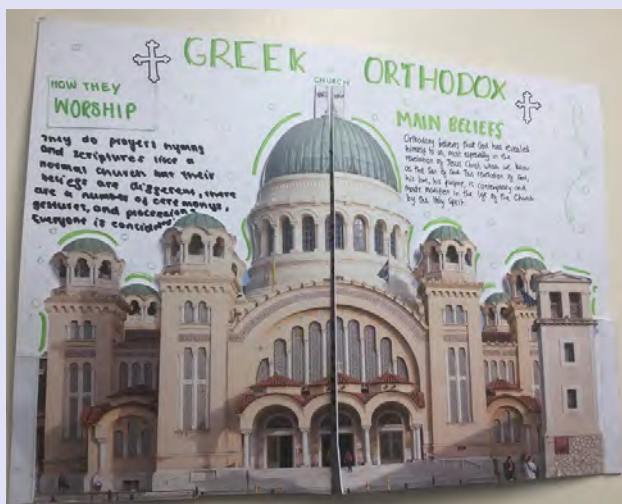 GREEK ORTHODOX
CHURCH
HOW THEY
WORSHIP
They do prayers hymns
and scriptures like a
normal church but their
beliefs are different, there
are a number of ceremonys,
gestures, and processions.
Everyone is
MAIN BELIEFS
Orthodoxy believes that God has revealed
himself to us, most especially in the
revelation of Jesus Christ, whom we know
as the Son of God. This revelation of God,
his love, his purpose, is contemporary and
made manifest in the life of the Church
by the Holy Spirit.